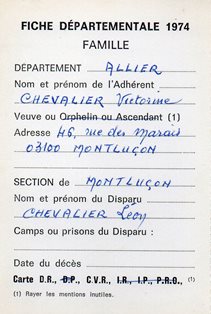 FICHE DÉPARTEMENTALE 1974
FAMILLE
DÉPARTEMENT ALLIER
Nom et prénom de l'Adhérent
CHEVALIER Victorine
Veuve ou Orphelin ou Ascendant (1)
Adresse 46, rue des Marais
03100 MONTLUÇON
SECTION de MONTLUÇON
Nom et prénom du Disparu
CHEVALIER Léon
Camps ou prisons du Disparu :
Date du décès
Carte D.R., D.P., C.V.R., I.R., I.P., P.R.O., (1)
(1) Rayer les mentions inutiles.